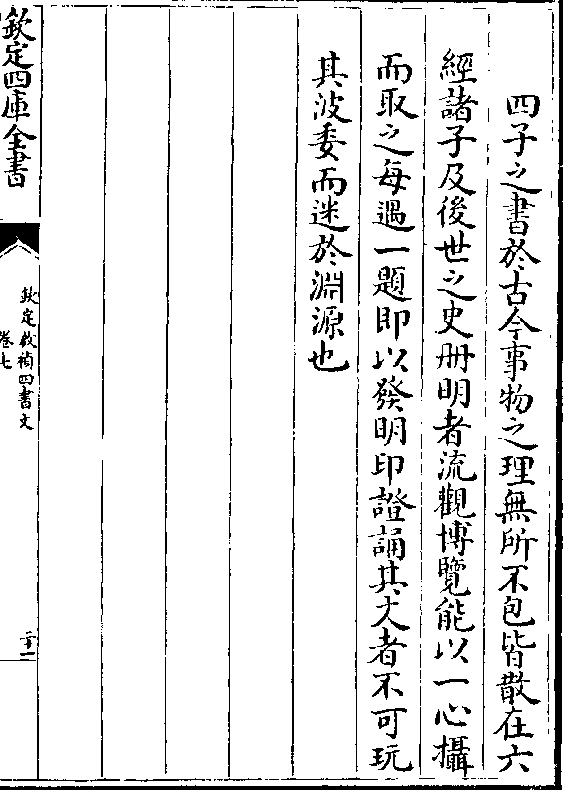 四子之書於古今事物之理無所不包皆散在六
經諸子及後世之史冊明者流觀博覽能以一心攝
而取之每遇一題即以發明印證誦其文者不可玩
其波委而迷於淵源也
欽定四庫全書
欽定啟禎四書文
卷七